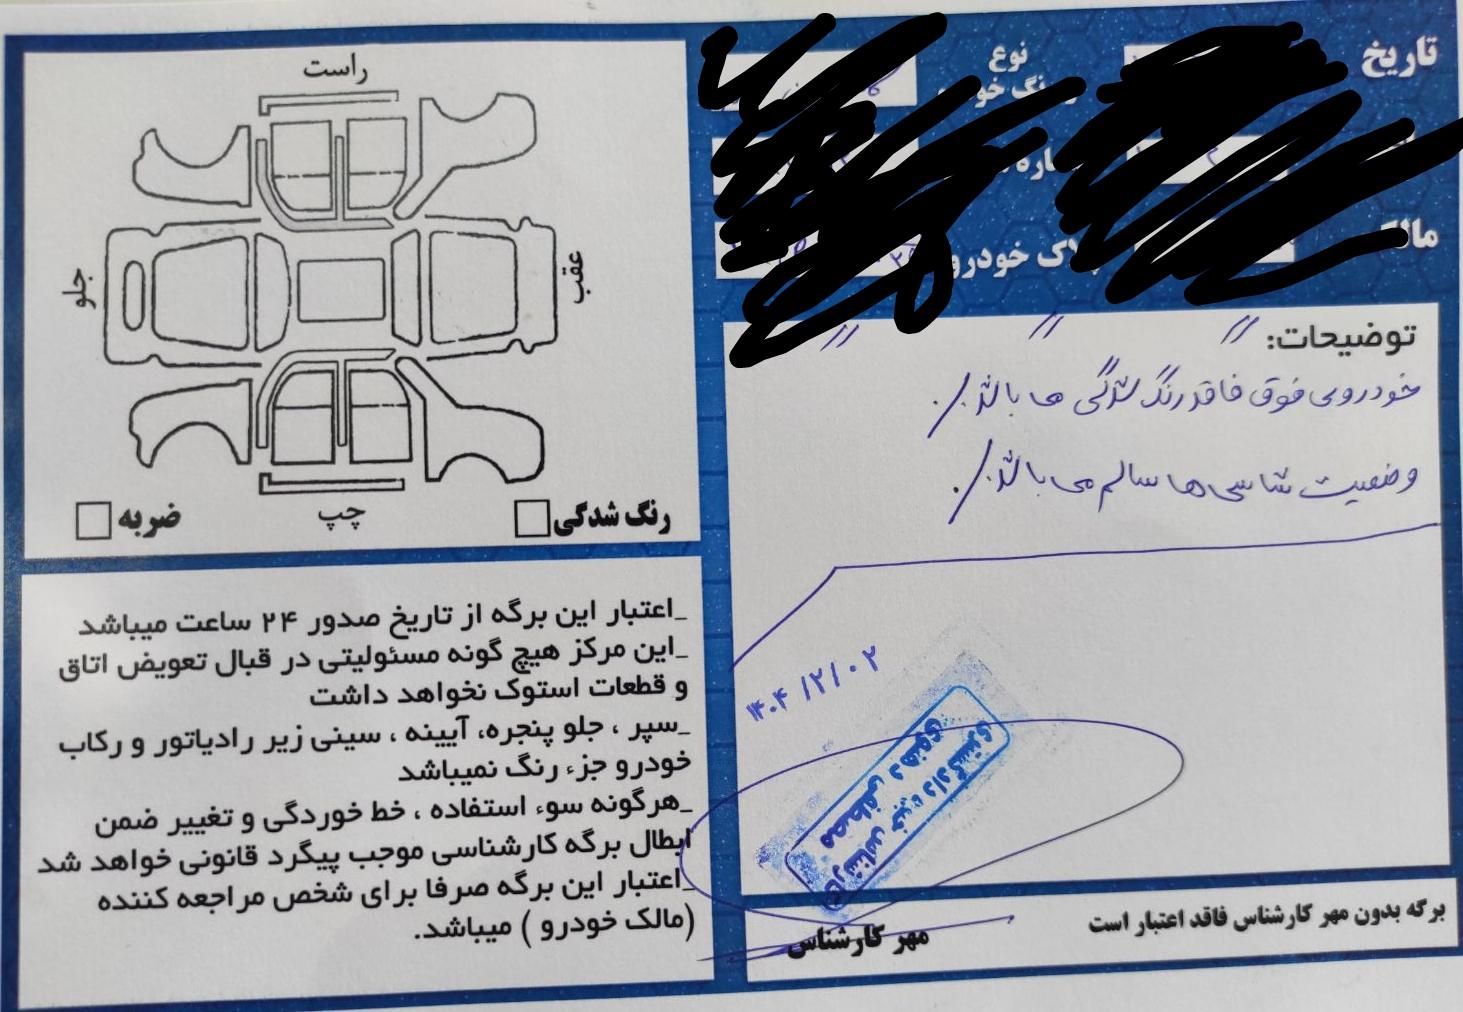 تاریخ
نوع
مالک
پلاک خودرو
توضیحات:
خودروی فوق فاقد رنگ شدگی ها باشد.
وضعیت شاسی ها سالم می باشد.
۱۴۰۴/۲/۰۲
کارشناس خبره دادگستری
مصطفی دهنوی
مهر کارشناس
برگه بدون مهر کارشناس فاقد اعتبار است
راست
جلو
عقب
چپ
رنگ شدگی
ضربه
_اعتبار این برگه از تاریخ صدور ۲۴ ساعت میباشد
_این مرکز هیچ گونه مسئولیتی در قبال تعویض اتاق
و قطعات استوک نخواهد داشت
_سپر ، جلو پنجره، آیینه ، سینی زیر رادیاتور و رکاب
خودرو جزء رنگ نمیباشد
_هرگونه سوء استفاده ، خط خوردگی و تغییر ضمن
ابطال برگه کارشناسی موجب پیگرد قانونی خواهد شد
_اعتبار این برگه صرفا برای شخص مراجعه کننده
(مالک خودرو ) میباشد.